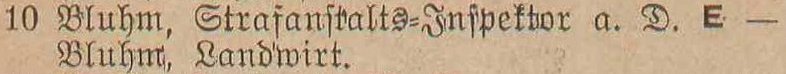 10 Bluhm, Strafanstalts-Inspektor a. D. E —
Bluhm, Landwirt.